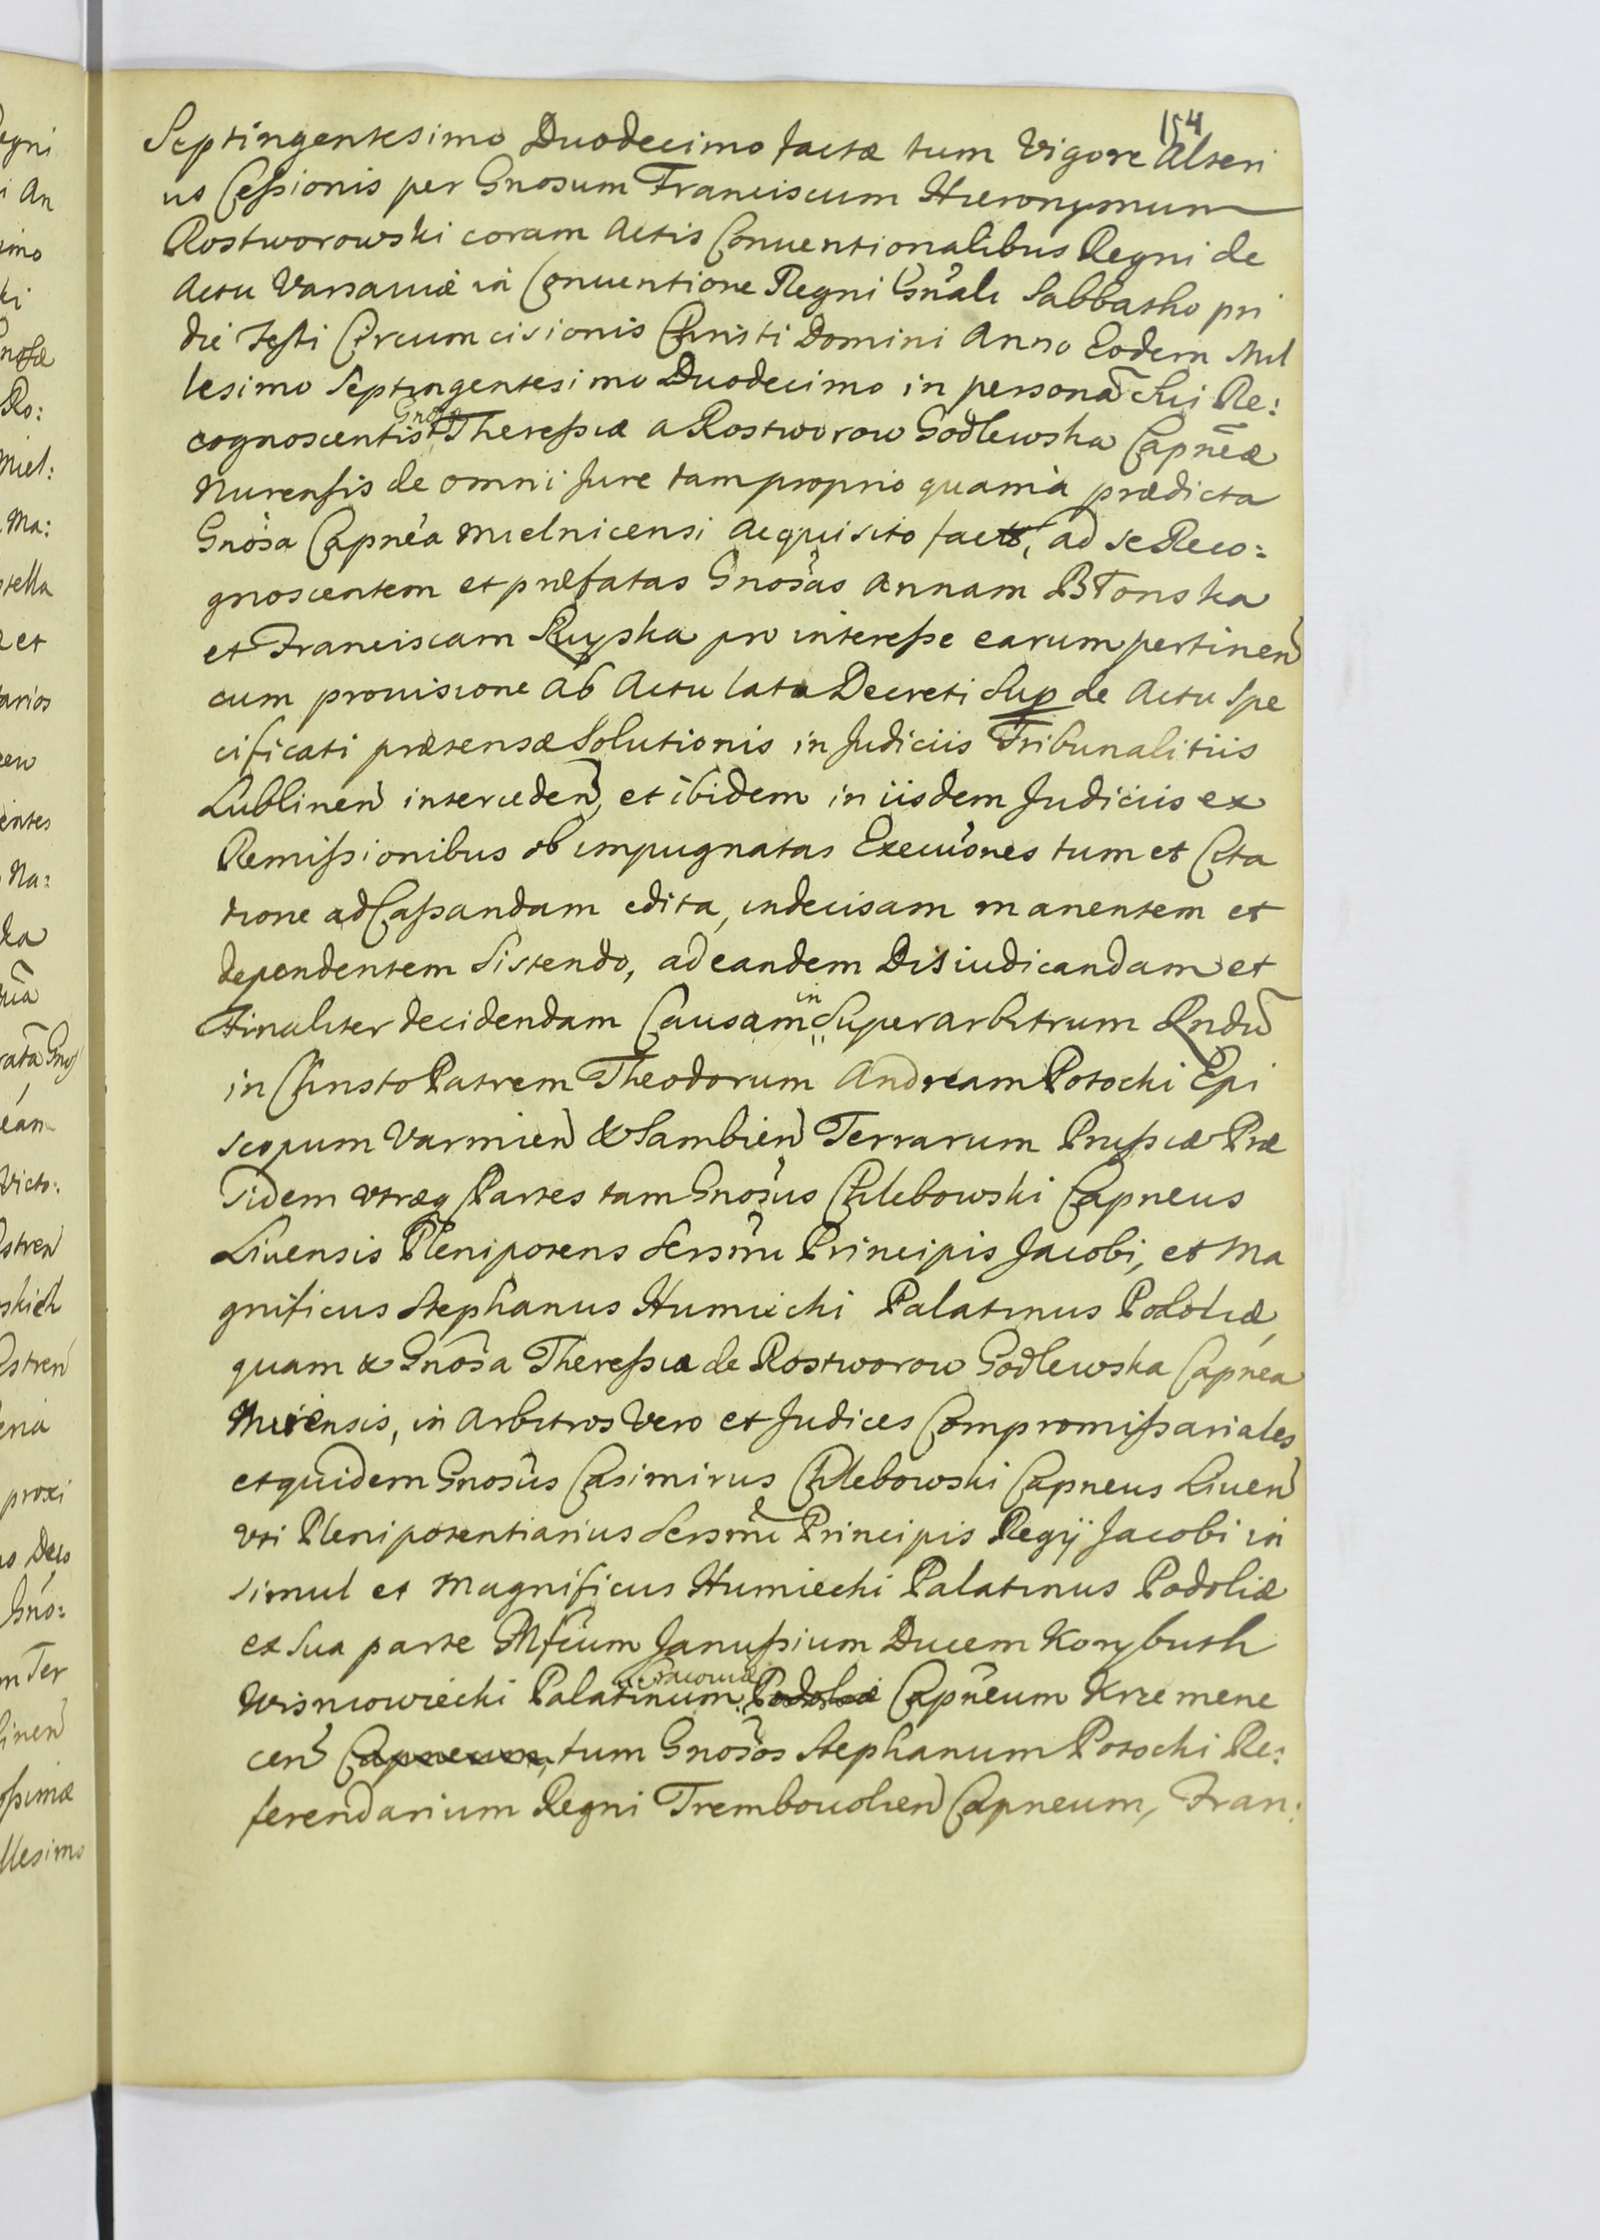 154
Septingentesimo Duodecimo factæ tum Vigore Alteri
us Cessionis per Gnosum Franciscum Hieronymum
Rostworowski coram Actis Conuentionalibus Regni de
Actu Varsauiæ in Conuentione Regni Gnâli Sabbatho pri
die Festi Circumcisionis Christi Domini Anno Eodem Mil
lesimo Septingentesimo Duodecimo in personã Sui Re:
cognoscentis Gnosæ Theressiæ a Rostworow Godlewska Capneæ
Nurensis de omni Jure tam proprio quam à prædicta
Gnosa Capnea Mielnicensi Acquisito facto, ad se Reco:
gnoscentem et præfatas Gnosas Annam Błonska
et Franciscam Rupska pro interesse earum pertinen
cum prouisione ab Actu lata Decreti Sup de Actu Spe
cificati prætensæ Solutionis in Judiciis Tribunalitiis
Lublinen interceden, et ibidem in iisdem Judiciis ex
Remissionibus ob impugnatas Execuones tum et Cita
tione ad Cassandam edita, indecisam manentem et
dependentem Sistendo, ad eandem Disiudicandam et
Finaliter decidendam Causam in Superarbitrum Rndũ
in Christo Patrem Theodorum Andream Potocki Epi
scopum Varmien & Sambien Terrarum Prussiæ Præ
sidem vtræq Partes tam Gnosus Chlebowski Capneus
Liuensis Plenipotens Sersmi Principis Jacobi, et Ma
gnificus Stephanus Humiecki Palatinus Podoliæ,
quam & Gnosa Theressia de Rostworow Godlewska Capnea
Nurensis, in Arbitros Vero et Judices Compromissariales
et quidem Gnosus Casimirus Chlebowski Capneus Liuen
vti Plenipotentiarius Sersmi Principis Regij Jacobi in
simul et Magnificus Humiecki Palatinus Podoliæ
ex Sua parte Mfcum Janussium Ducem Korybuth
Wisniowiecki Palatinum Cracouiæ Podoliæ Capneum Krzemene
cen Capneum, tum Gnosos Stephanum Potocki Re:
ferendarium Regni Trembouolien Capneum, Fran: